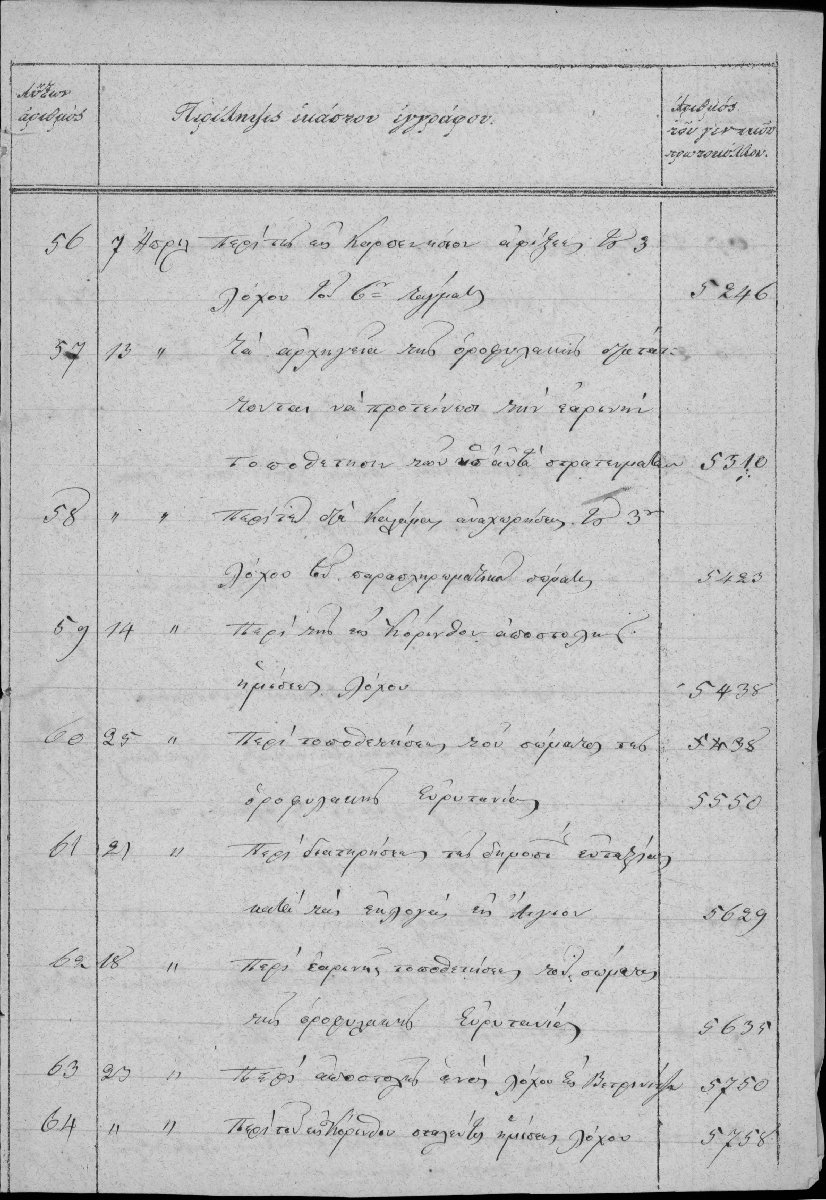 Αὔξων
ἀριθμὸς
Περίληψις ἑκάστου ἐγγράφου.
Ἀριθμὸς
τοῦ γενικοῦ
πρωτοκόλλου.
56 7 Ἀπριλ Περὶ τῆς εἰς Καρπενήσιον ἀφίξεως τοῦ 3
λόχου τοῦ 6ου τάγματος 5246
57 13 " Τὰ ἀρχηγεῖα τῆς ὁροφυλακῆς διατάτ-
τονται νὰ προτείνωσι τὴν ἐαρινὴν
τοποθέτησιν τῶν ὑπ' αὐτὰ στρατευμάτων 5310
58 " " Περὶ τῆς διὰ Καλάμας ἀναχωρήσεως τοῦ 3ου
λόχου τοῦ σώματος 5423
59 14 " Περὶ τῆς εἰς Κόρινθον ἀποστολῆς
ἡμίσεως λόχου 5438
60 25 " Περὶ τοποθετήσεως τοῦ σώματος τῆς 5438
ὁροφυλακῆς Εὐρυτανίας 5550
61 21 " Περὶ διατηρήσεως τῆς δημοσί εὐταξίας
κατὰ τὰς ἐκλογὰς εἰς Αἴγιον 5629
62 18 " Περὶ ἐαρινῆς τοποθετήσεως τοῦ σώματος
τῆς ὁροφυλακῆς Εὐρυτανίας 5635
63 23 " Περὶ ἀποστολῆς ἑνὸς λόχου εἰς 5750
64 " " Περὶ τοῦ εἰς Κόρινθον σταλέντος ἡμίσεως λόχου 5758